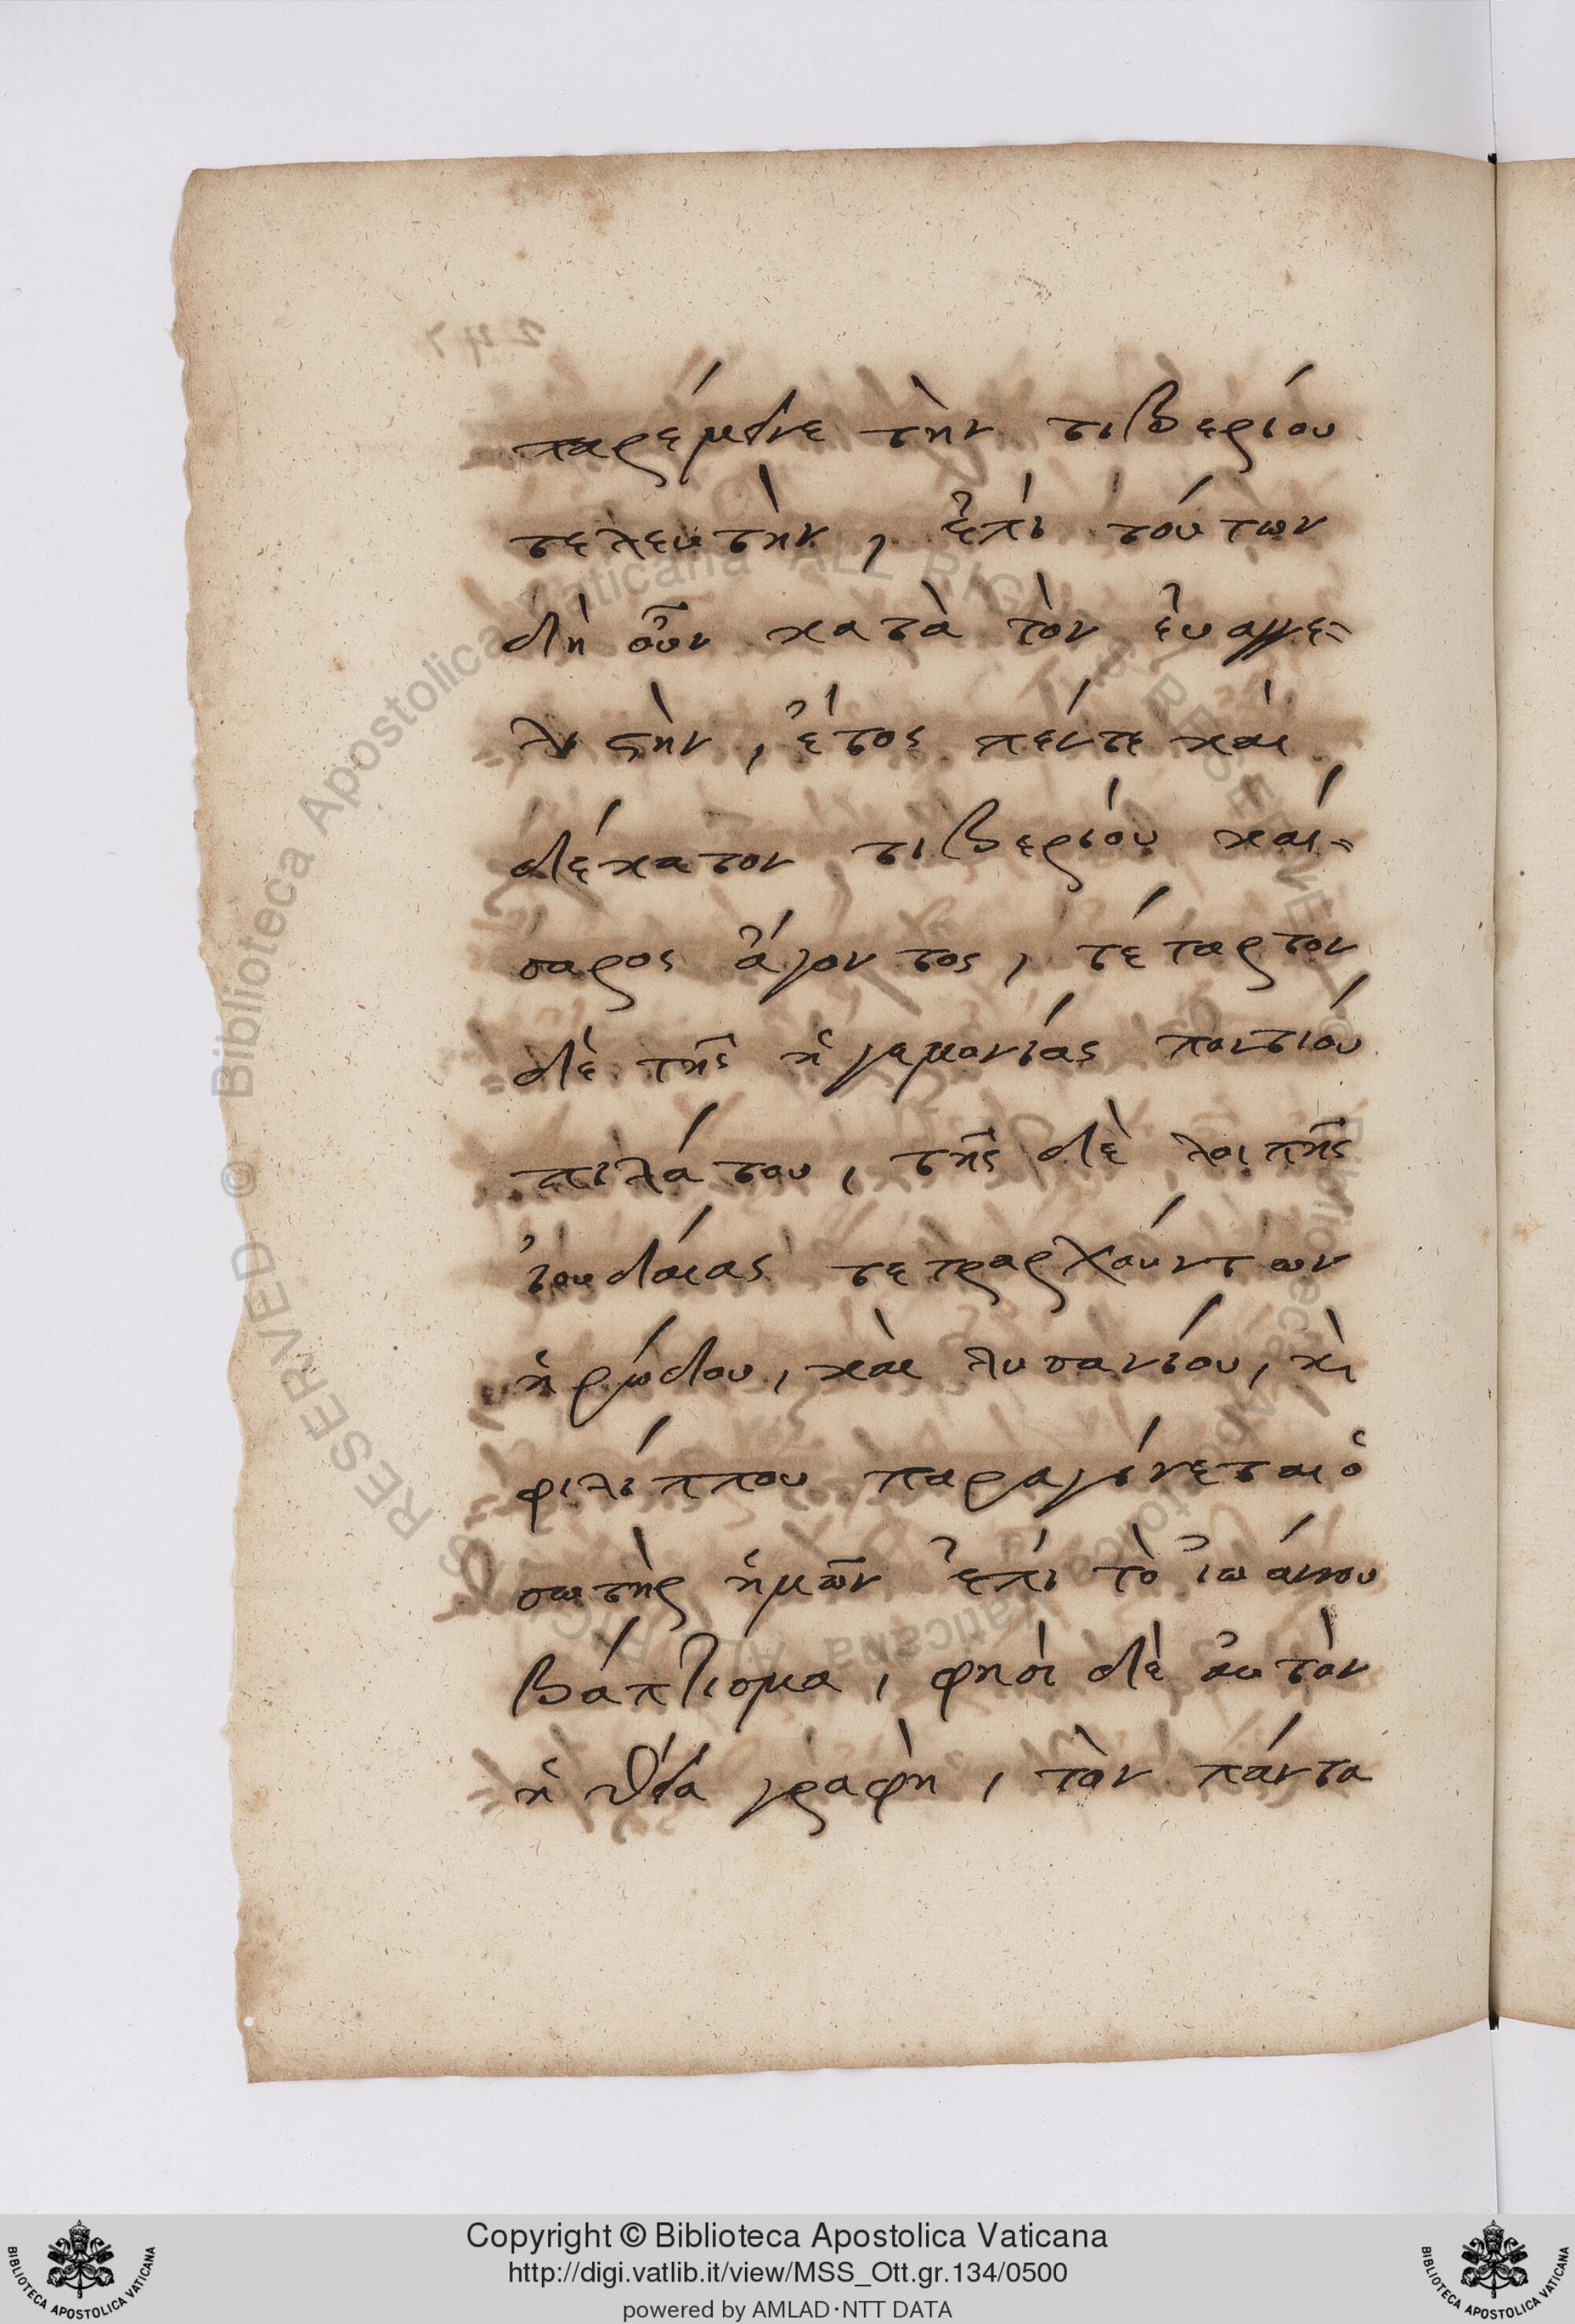 παρέμεινε τὴν τιβερίου
τελευτὴν, ἐπὶ τούτων
δὴ οὖν κατὰ τὸν ἐυαγγε=
λιστὴν, ἔτος πέντε καὶ
δέκατον τιβερίου καί=
σαρος ἄγοντος, τέταρτον
δὲ τῆς ἡγεμονίας ποντίου
πιλάτου, τῆς δὲ λοιπῆς
ἰουδαίας τετραρχούντων
ἡρώδου, καὶ λυσανίου, κὶ
φιλίππου παραγίνεται ὁ
σωτὴρ ἡμῶν ἐπὶ τὸ ἰωάννου
βάπτισμα, φησὶ δὲ αὐτὸν
ἡ θεία γραφὴ, τὸν πάντα
© Biblioteca Apostolica Vaticana ALL RIGHTS RESERVED
Copyright © Biblioteca Apostolica Vaticana
http://digi.vatlib.it/view/MSS_Ott.gr.134/0500
powered by AMLAD·NTT DATA
BIBLIOTECA APOSTOLICA VATICANA
BIBLIOTECA APOSTOLICA VATICANA